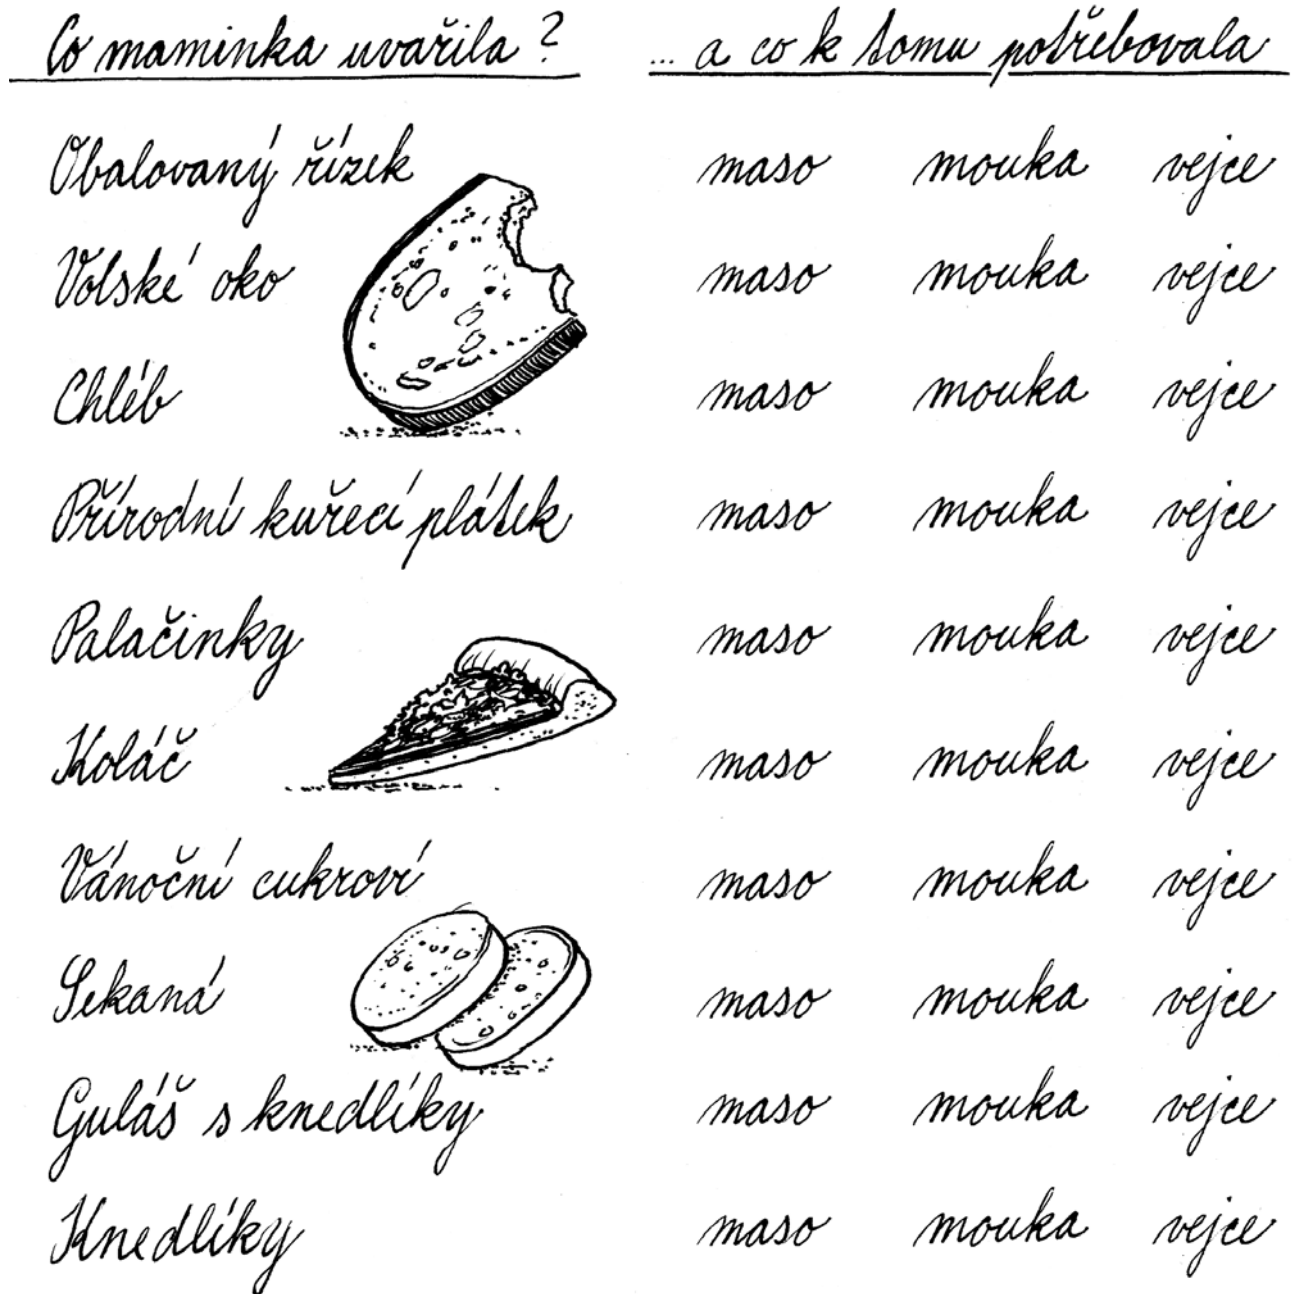 Co maminka uvařila ? ... a co k tomu potřebovala
Obalovaný řízek maso mouka vejce
Volské oko maso mouka vejce
Chléb maso mouka vejce
Přírodní kuřecí plátek maso mouka vejce
Palačinky maso mouka vejce
Koláč maso mouka vejce
Vánoční cukroví maso mouka vejce
Sekaná maso mouka vejce
Guláš s knedlíky maso mouka vejce
Knedlíky maso mouka vejce